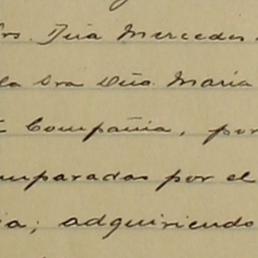 Dña Mercedes
la Sra Dña. María
Compañia, por
mparadas por el
ia; adquiriendo